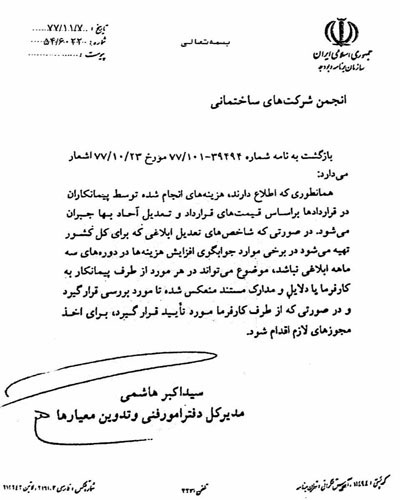 بسمه تعالی
جمهوری اسلامی ایران
سازمان برنامه و بودجه
تاریخ : ۷۷/۱۱/۷
شماره : ۵۴/۶۰۲۲-
پیوست :
انجمن شرکت‌های ساختمانی
بازگشت به نامه شماره ۳۹۴۹۴-۷۷/۱۰۱ مورخ ۷۷/۱۰/۲۳ اشعار
می‌دارد:
همانطوری که اطلاع دارند، هزینه‌های انجام شده توسط پیمانکاران
در قراردادها براساس قیمت‌های قرارداد و تعدیل آحاد بها جبران
می‌شود. در صورتی که شاخص‌های تعدیل ابلاغی که برای کل کشور
تهیه می‌شود در برخی موارد جوابگوی افزایش هزینه‌ها در دوره‌های سه
ماهه ابلاغی نباشد، موضوع می‌تواند در هر مورد از طرف پیمانکار به
کارفرما یا دلایل و مدارک مستند منعکس شده تا مورد بررسی قرار گیرد
و در صورتی که از طرف کارفرما مورد تأیید قرار گیرد، برای اخذ
مجوزهای لازم اقدام شود.
سید اکبر هاشمی
مدیر کل دفتر امور فنی و تدوین معیارها
تلفن ۳۲۷۱